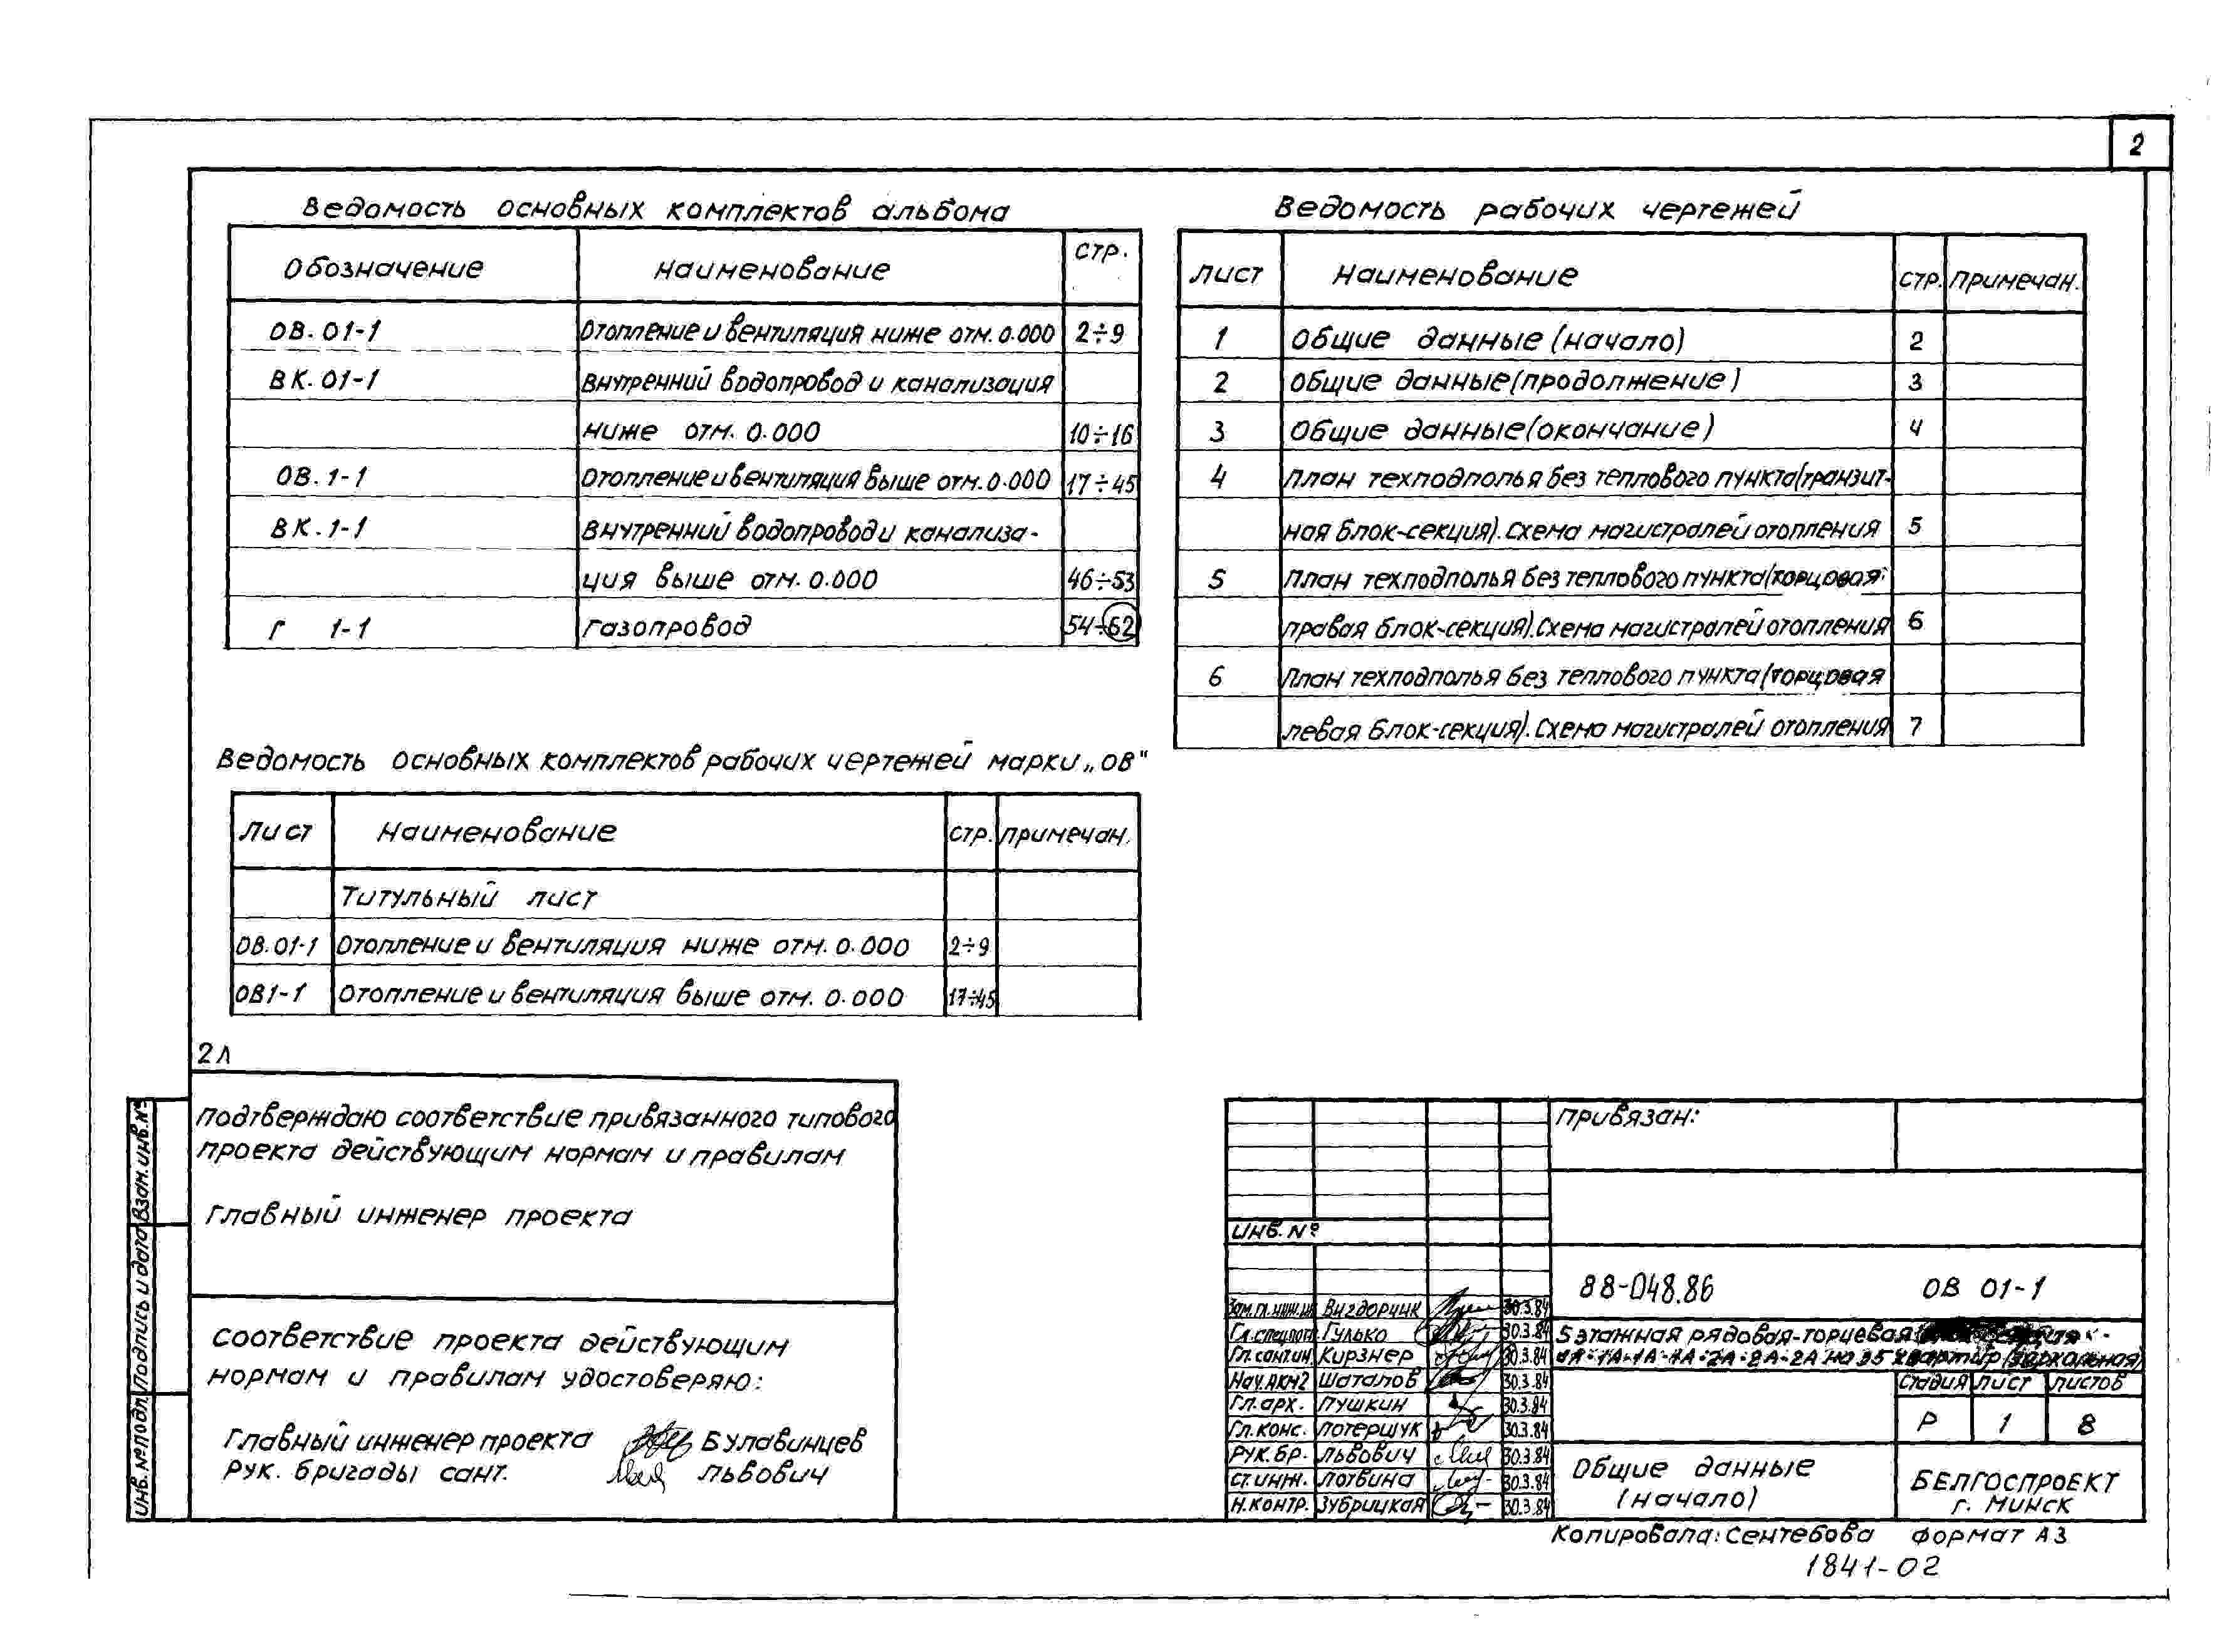 2
Ведомость основных комплектов альбома
Обозначение Наименование стр.
ОВ. 01-1 Отопление и вентиляция ниже отм. 0.000 2÷9
ВК. 01-1 Внутренний водопровод и канализация
ниже отм. 0.000 10÷16
ОВ. 1-1 Отопление и вентиляция выше отм. 0.000 17÷45
ВК. 1-1 Внутренний водопровод и канализа-
ция выше отм. 0.000 46÷53
Г 1-1 Газопровод 54÷62
Ведомость рабочих чертежей
Лист Наименование стр. Примечан.
1 Общие данные (начало) 2
2 Общие данные (продолжение) 3
3 Общие данные (окончание) 4
4 План техподполья без теплового пункта (транзит-
ная блок-секция). Схема магистралей отопления 5
5 План техподполья без теплового пункта (торцовая
правая блок-секция). Схема магистралей отопления 6
6 План техподполья без теплового пункта (торцовая
левая блок-секция). Схема магистралей отопления 7
Ведомость основных комплектов рабочих чертежей марки „ОВ"
Лист Наименование стр. Примечан.
Титульный лист
ОВ. 01-1 Отопление и вентиляция ниже отм. 0.000 2÷9
ОВ1-1 Отопление и вентиляция выше отм. 0.000 17÷45
2л
Подтверждаю соответствие привязанного типового
проекта действующим нормам и правилам
Главный инженер проекта
Соответствие проекта действующим
нормам и правилам удостоверяю:
Главный инженер проекта Булавинцев
Рук. бригады сант. Львович
Инв. № подл. Подпись и дата Взам. инв. №
Привязан:
Инв. №
88-048.86 ОВ 01-1
Зам. гл. инж. ин. Вигдорчик 30.3.84
Гл. спец. пот. Гулько 30.3.84
Гл. сант. ин. Кирзнер 30.3.84
Нач. АКМ2 Шаталов 30.3.84
Гл. арх. Пушкин 30.3.84
Гл. конс. Потершук 30.3.84
Рук. бр. Львович 30.3.84
Ст. инж. Лотвина 30.3.84
Н. контр. Зубрицкая 30.3.84
5 этажная рядовая-торцевая
1А-1А-1А-2А-2А-2А на 35 квартир (зеркальная)
Стадия Лист Листов
Р 1 8
Общие данные
(начало)
БЕЛГОСПРОЕКТ
г. Минск
Копировала: Сентебова Формат А3
1841-02